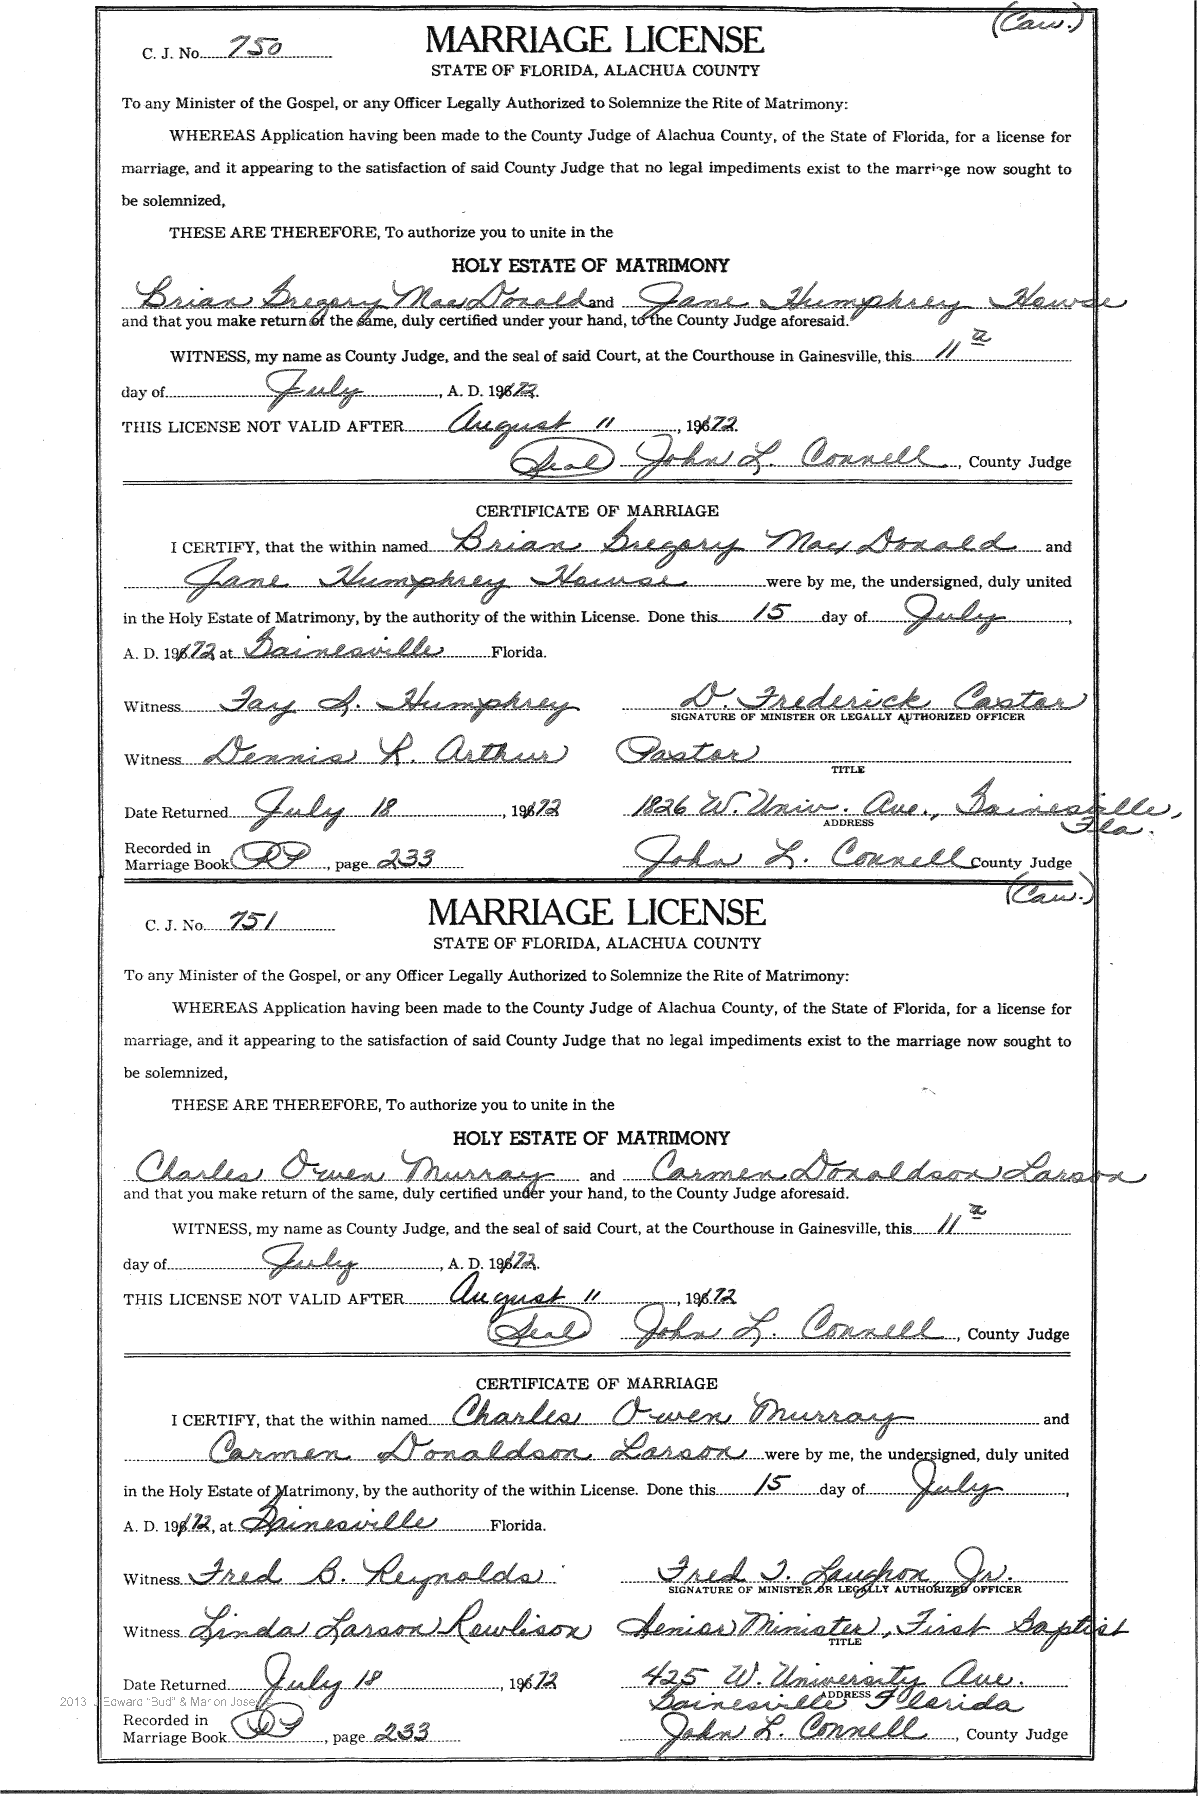 (Caw.)
C. J. No. 750 MARRIAGE LICENSE
STATE OF FLORIDA, ALACHUA COUNTY
To any Minister of the Gospel, or any Officer Legally Authorized to Solemnize the Rite of Matrimony:
WHEREAS Application having been made to the County Judge of Alachua County, of the State of Florida, for a license for
marriage, and it appearing to the satisfaction of said County Judge that no legal impediments exist to the marriage now sought to
be solemnized,
THESE ARE THEREFORE, To authorize you to unite in the
HOLY ESTATE OF MATRIMONY
Brian Gregory MacDonald and Jane Humphrey Howse
and that you make return of the same, duly certified under your hand, to the County Judge aforesaid.
WITNESS, my name as County Judge, and the seal of said Court, at the Courthouse in Gainesville, this 11
day of July, A. D. 1972.
THIS LICENSE NOT VALID AFTER August 11, 1972.
(Seal) John L. Connell, County Judge
CERTIFICATE OF MARRIAGE
I CERTIFY, that the within named Brian Gregory MacDonald and
Jane Humphrey Howse were by me, the undersigned, duly united
in the Holy Estate of Matrimony, by the authority of the within License. Done this 15 day of July,
A. D. 1972 at Gainesville Florida.
Witness Fay L. Humphrey D. Frederick Castor
SIGNATURE OF MINISTER OR LEGALLY AUTHORIZED OFFICER
Witness Dennis R. Arthur Pastor
TITLE
Date Returned July 18, 1972 1826 W. Univ. Ave., Gainesville,
ADDRESS Fla.
Recorded in
Marriage Book, page 233 John L. Connell County Judge
(Caw.)
C. J. No. 751 MARRIAGE LICENSE
STATE OF FLORIDA, ALACHUA COUNTY
To any Minister of the Gospel, or any Officer Legally Authorized to Solemnize the Rite of Matrimony:
WHEREAS Application having been made to the County Judge of Alachua County, of the State of Florida, for a license for
marriage, and it appearing to the satisfaction of said County Judge that no legal impediments exist to the marriage now sought to
be solemnized,
THESE ARE THEREFORE, To authorize you to unite in the
HOLY ESTATE OF MATRIMONY
Charles Owen Murray and Carmen Donaldson Larson
and that you make return of the same, duly certified under your hand, to the County Judge aforesaid.
WITNESS, my name as County Judge, and the seal of said Court, at the Courthouse in Gainesville, this 11
day of July, A. D. 1972.
THIS LICENSE NOT VALID AFTER August 11, 1972
(Seal) John L. Connell, County Judge
CERTIFICATE OF MARRIAGE
I CERTIFY, that the within named Charles Owen Murray and
Carmen Donaldson Larson were by me, the undersigned, duly united
in the Holy Estate of Matrimony, by the authority of the within License. Done this 15 day of July,
A. D. 1972, at Gainesville Florida.
Witness Fred B. Reynolds Fred T. Laughon, Jr.
SIGNATURE OF MINISTER OR LEGALLY AUTHORIZED OFFICER
Witness Linda Larson Rowlison Senior Minister, First Baptist
TITLE
Date Returned July 18, 1972 425 W. University Ave.
2013 J Edward "Bud" & Marion ADDRESS Gainesville Florida
Recorded in
Marriage Book, page 233 John L. Connell, County Judge